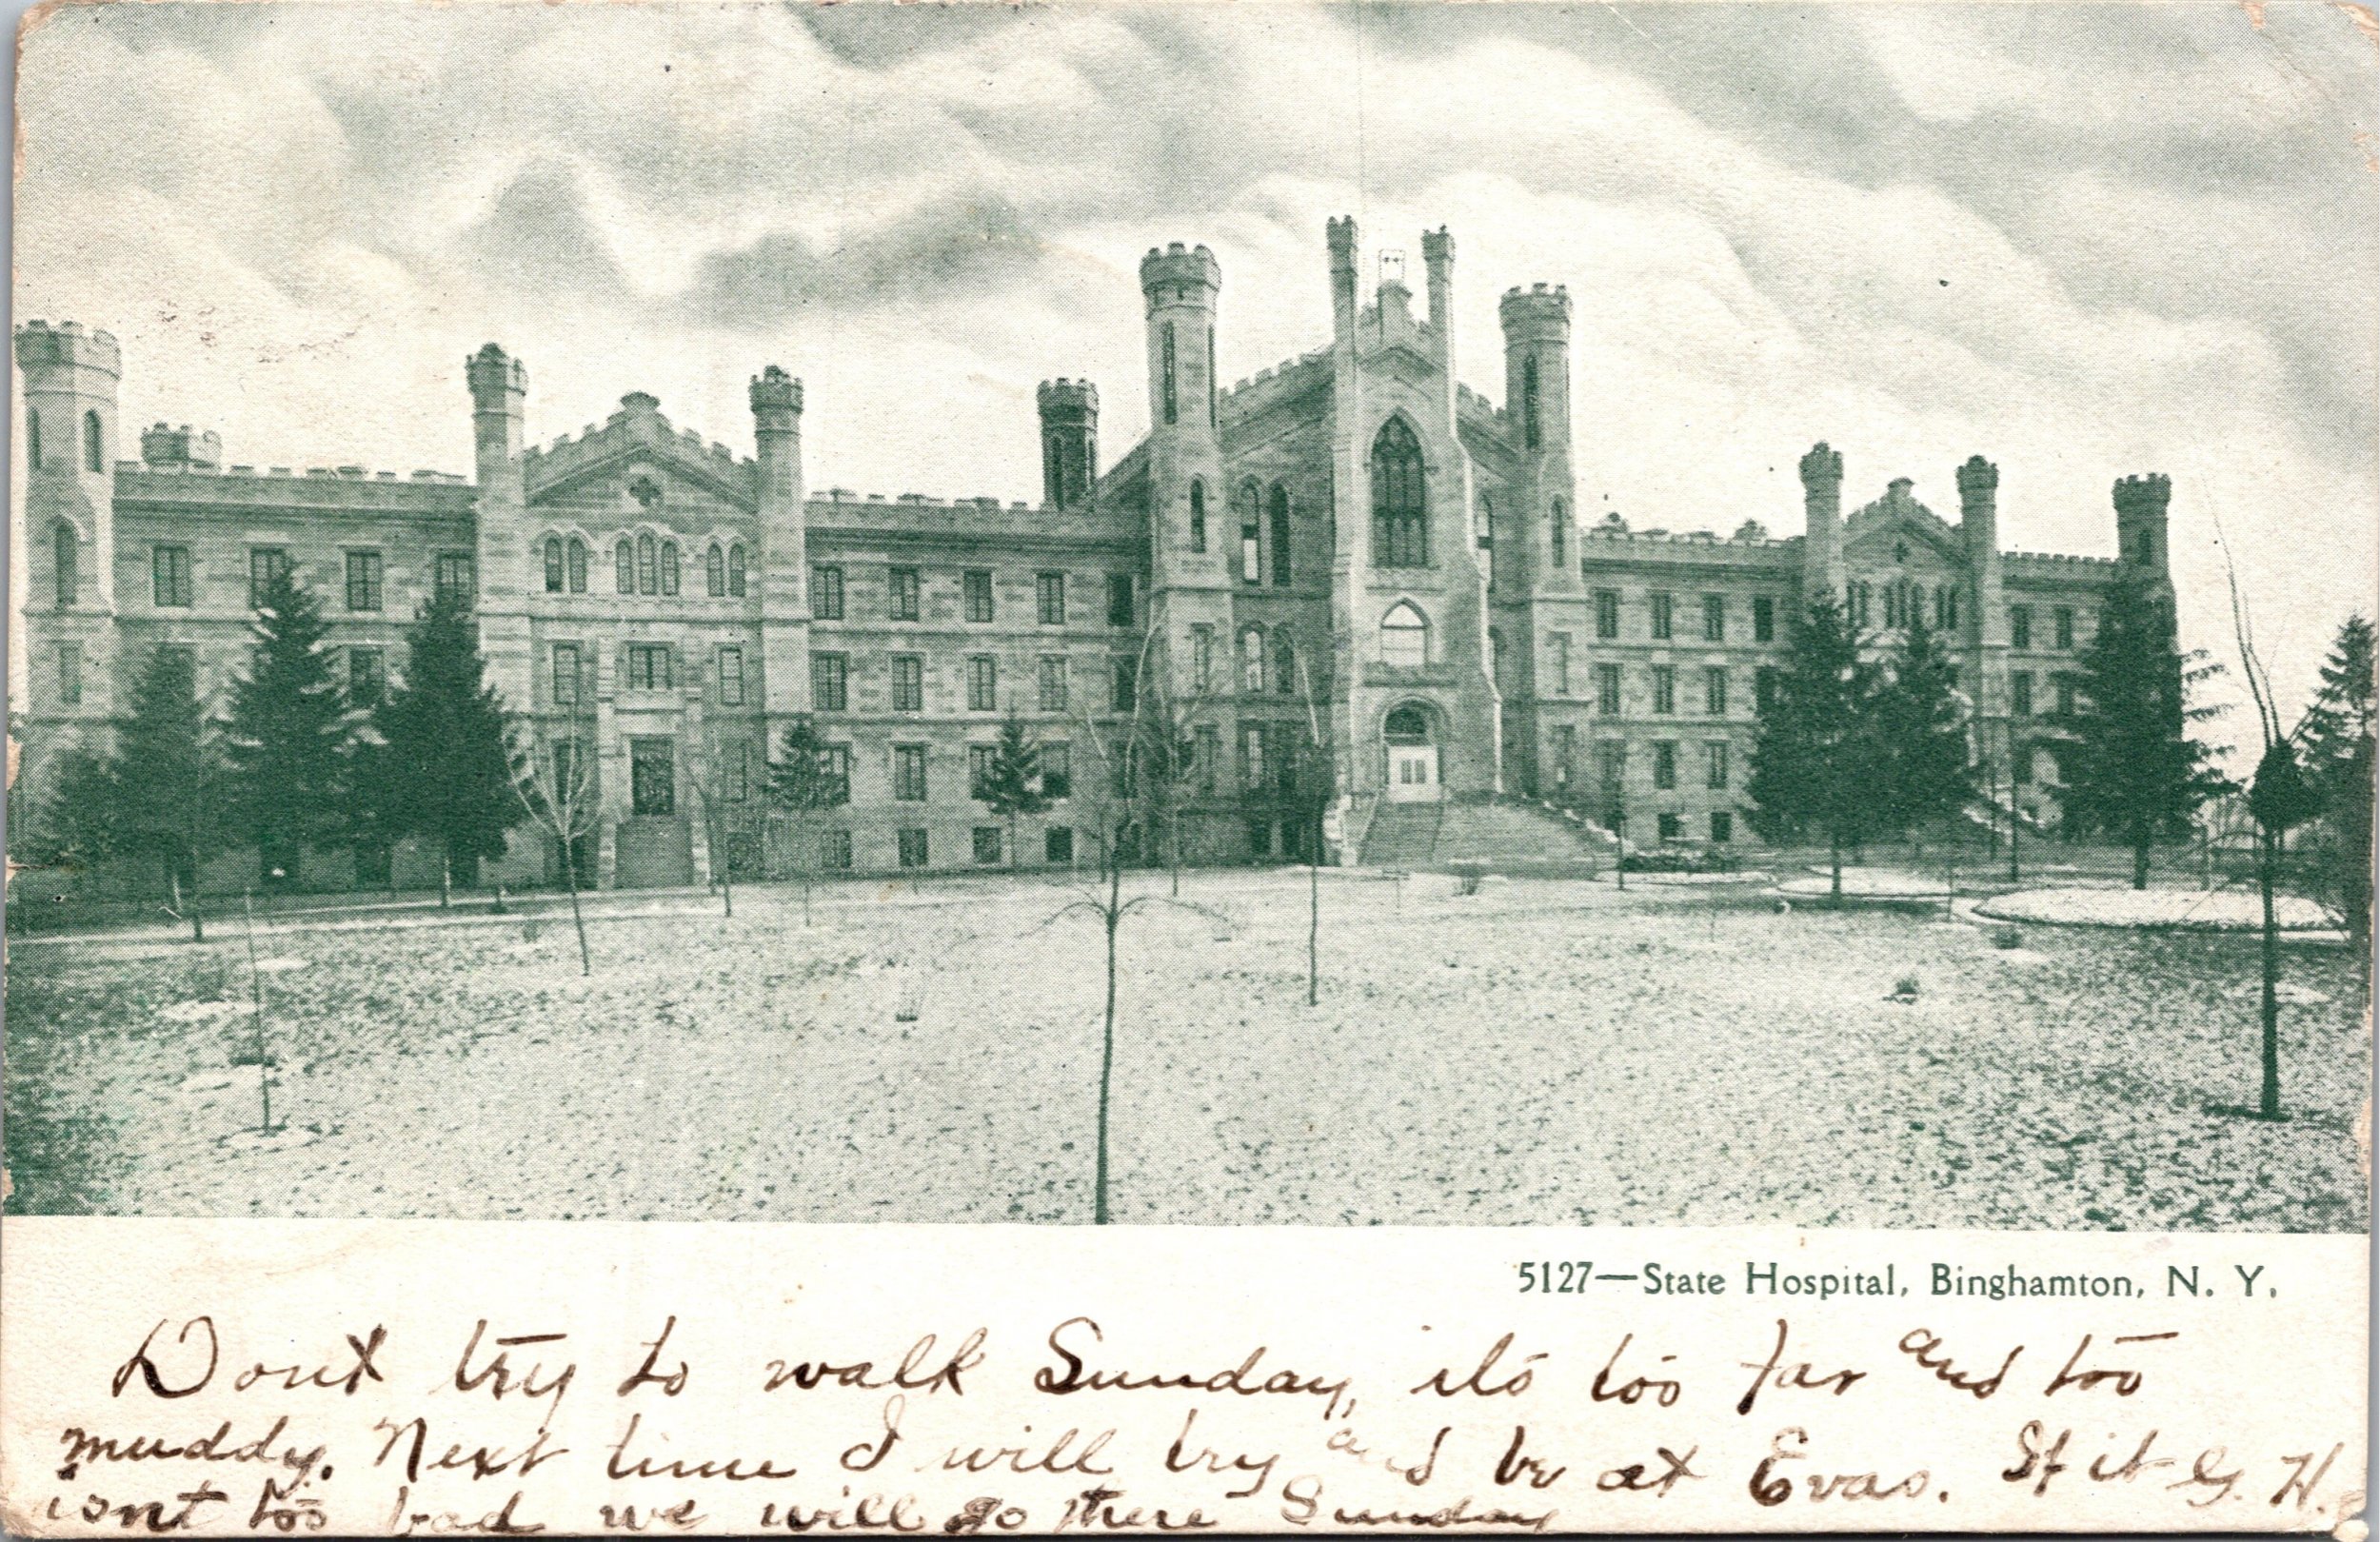 5127—State Hospital, Binghamton, N. Y.
Dont try to walk Sunday, its too far and too
muddy. Next time I will try and be at Evas. If it G. H.
isnt too bad we will go there Sunday